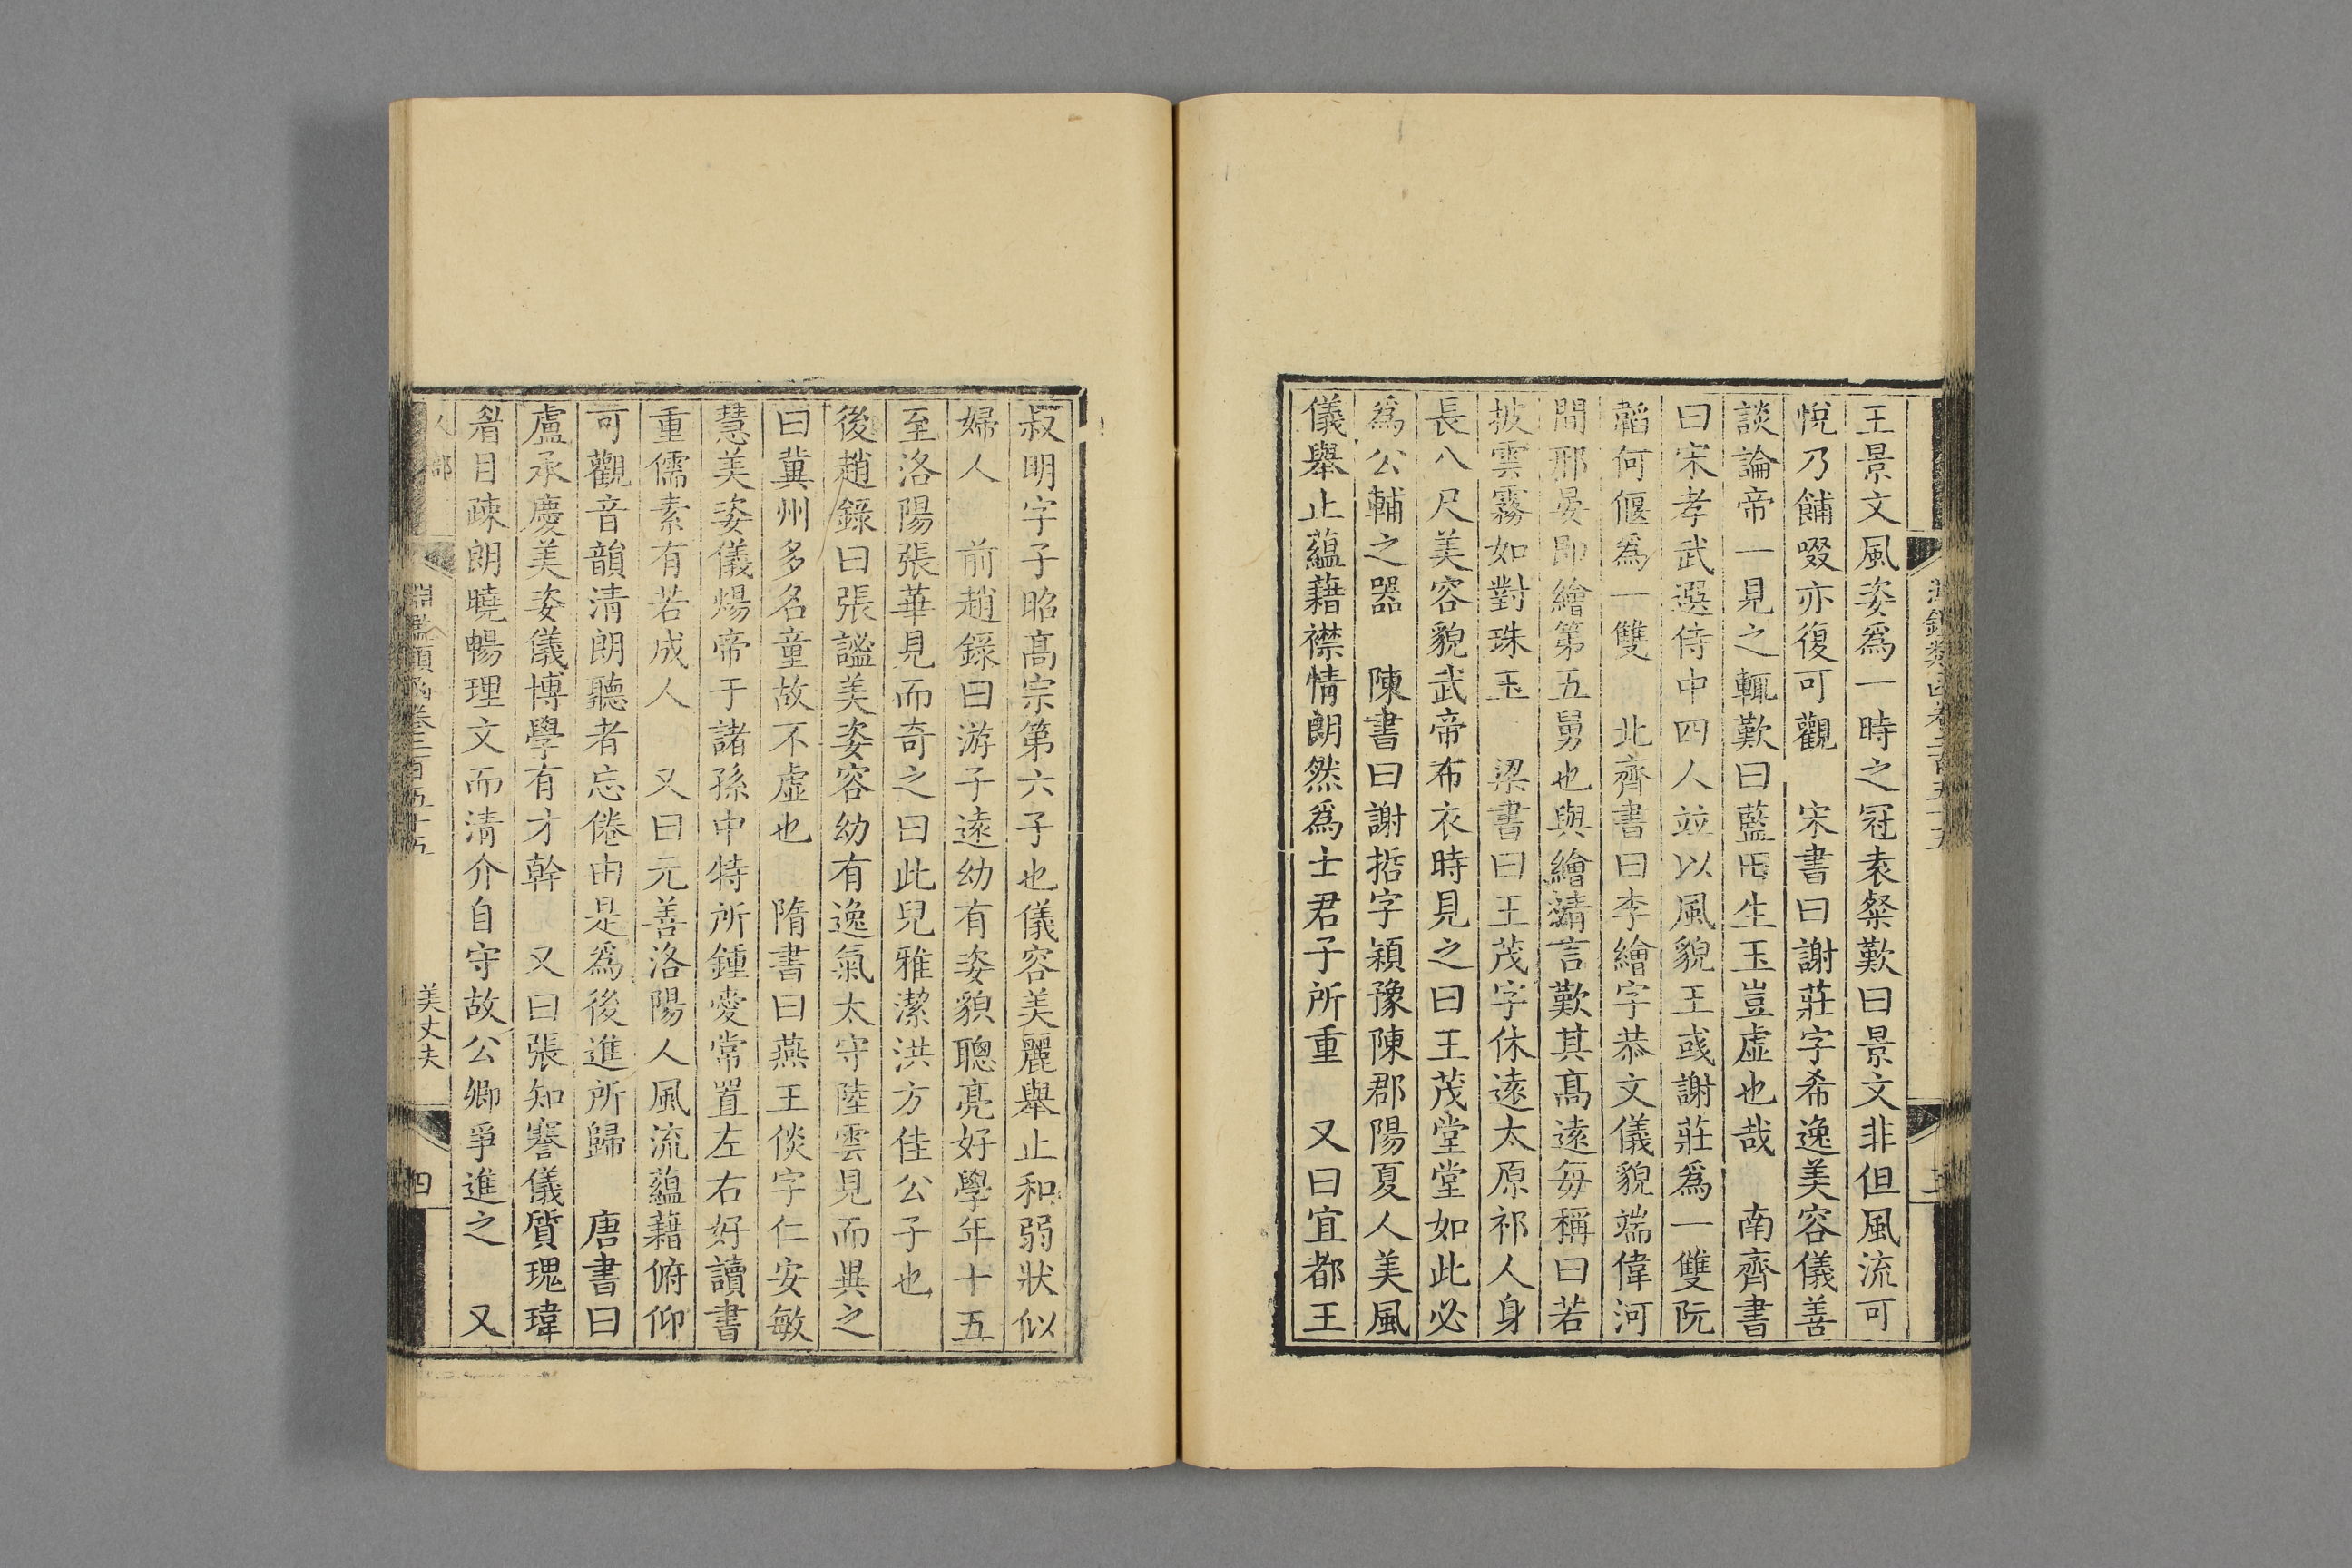 王景文風姿爲一時之冠袁粲歎曰景文非但風流可
悅乃餔啜亦復可觀　宋書曰謝莊字希逸美容儀善
談論帝一見之輒歎曰藍田生玉豈虛也哉　南齊書
曰宋孝武選侍中四人竝以風貌王彧謝莊爲一雙阮
韜何偃爲一雙　北齊書曰李繪字恭文儀貌端偉河
間邢晏即繪第五舅也與繪清言歎其髙逺每稱曰若
披雲霧如對珠玉　梁書曰王茂字休逺太原祁人身
長八尺美容貌武帝布衣時見之曰王茂堂堂如此必
爲公輔之器　陳書曰謝哲字穎豫陳郡陽夏人美風
儀舉止蘊藉襟情朗然爲士君子所重　又曰宜都王
叔明字子昭髙宗第六子也儀容美麗舉止和弱狀似
婦人　前趙錄曰游子逺幼有姿貌聰亮好學年十五
至洛陽張華見而奇之曰此兒雅潔洪方佳公子也
後趙錄曰張謐美姿容幼有逸氣太守陸雲見而異之
曰冀州多名童故不虛也　隋書曰燕王倓字仁安敏
慧美姿儀煬帝于諸孫中特所鍾愛常置左右好讀書
重儒素有若成人　又曰元善洛陽人風流蘊藉俯仰
可觀音韻清朗聽者忘倦由是爲後進所歸　唐書曰
盧承慶美姿儀博學有才幹　又曰張知謇儀質瑰瑋
眉目疎朗曉暢理文而清介自守故公卿爭進之　又
人部　淵鑑類函卷二百五十五　美丈夫　四